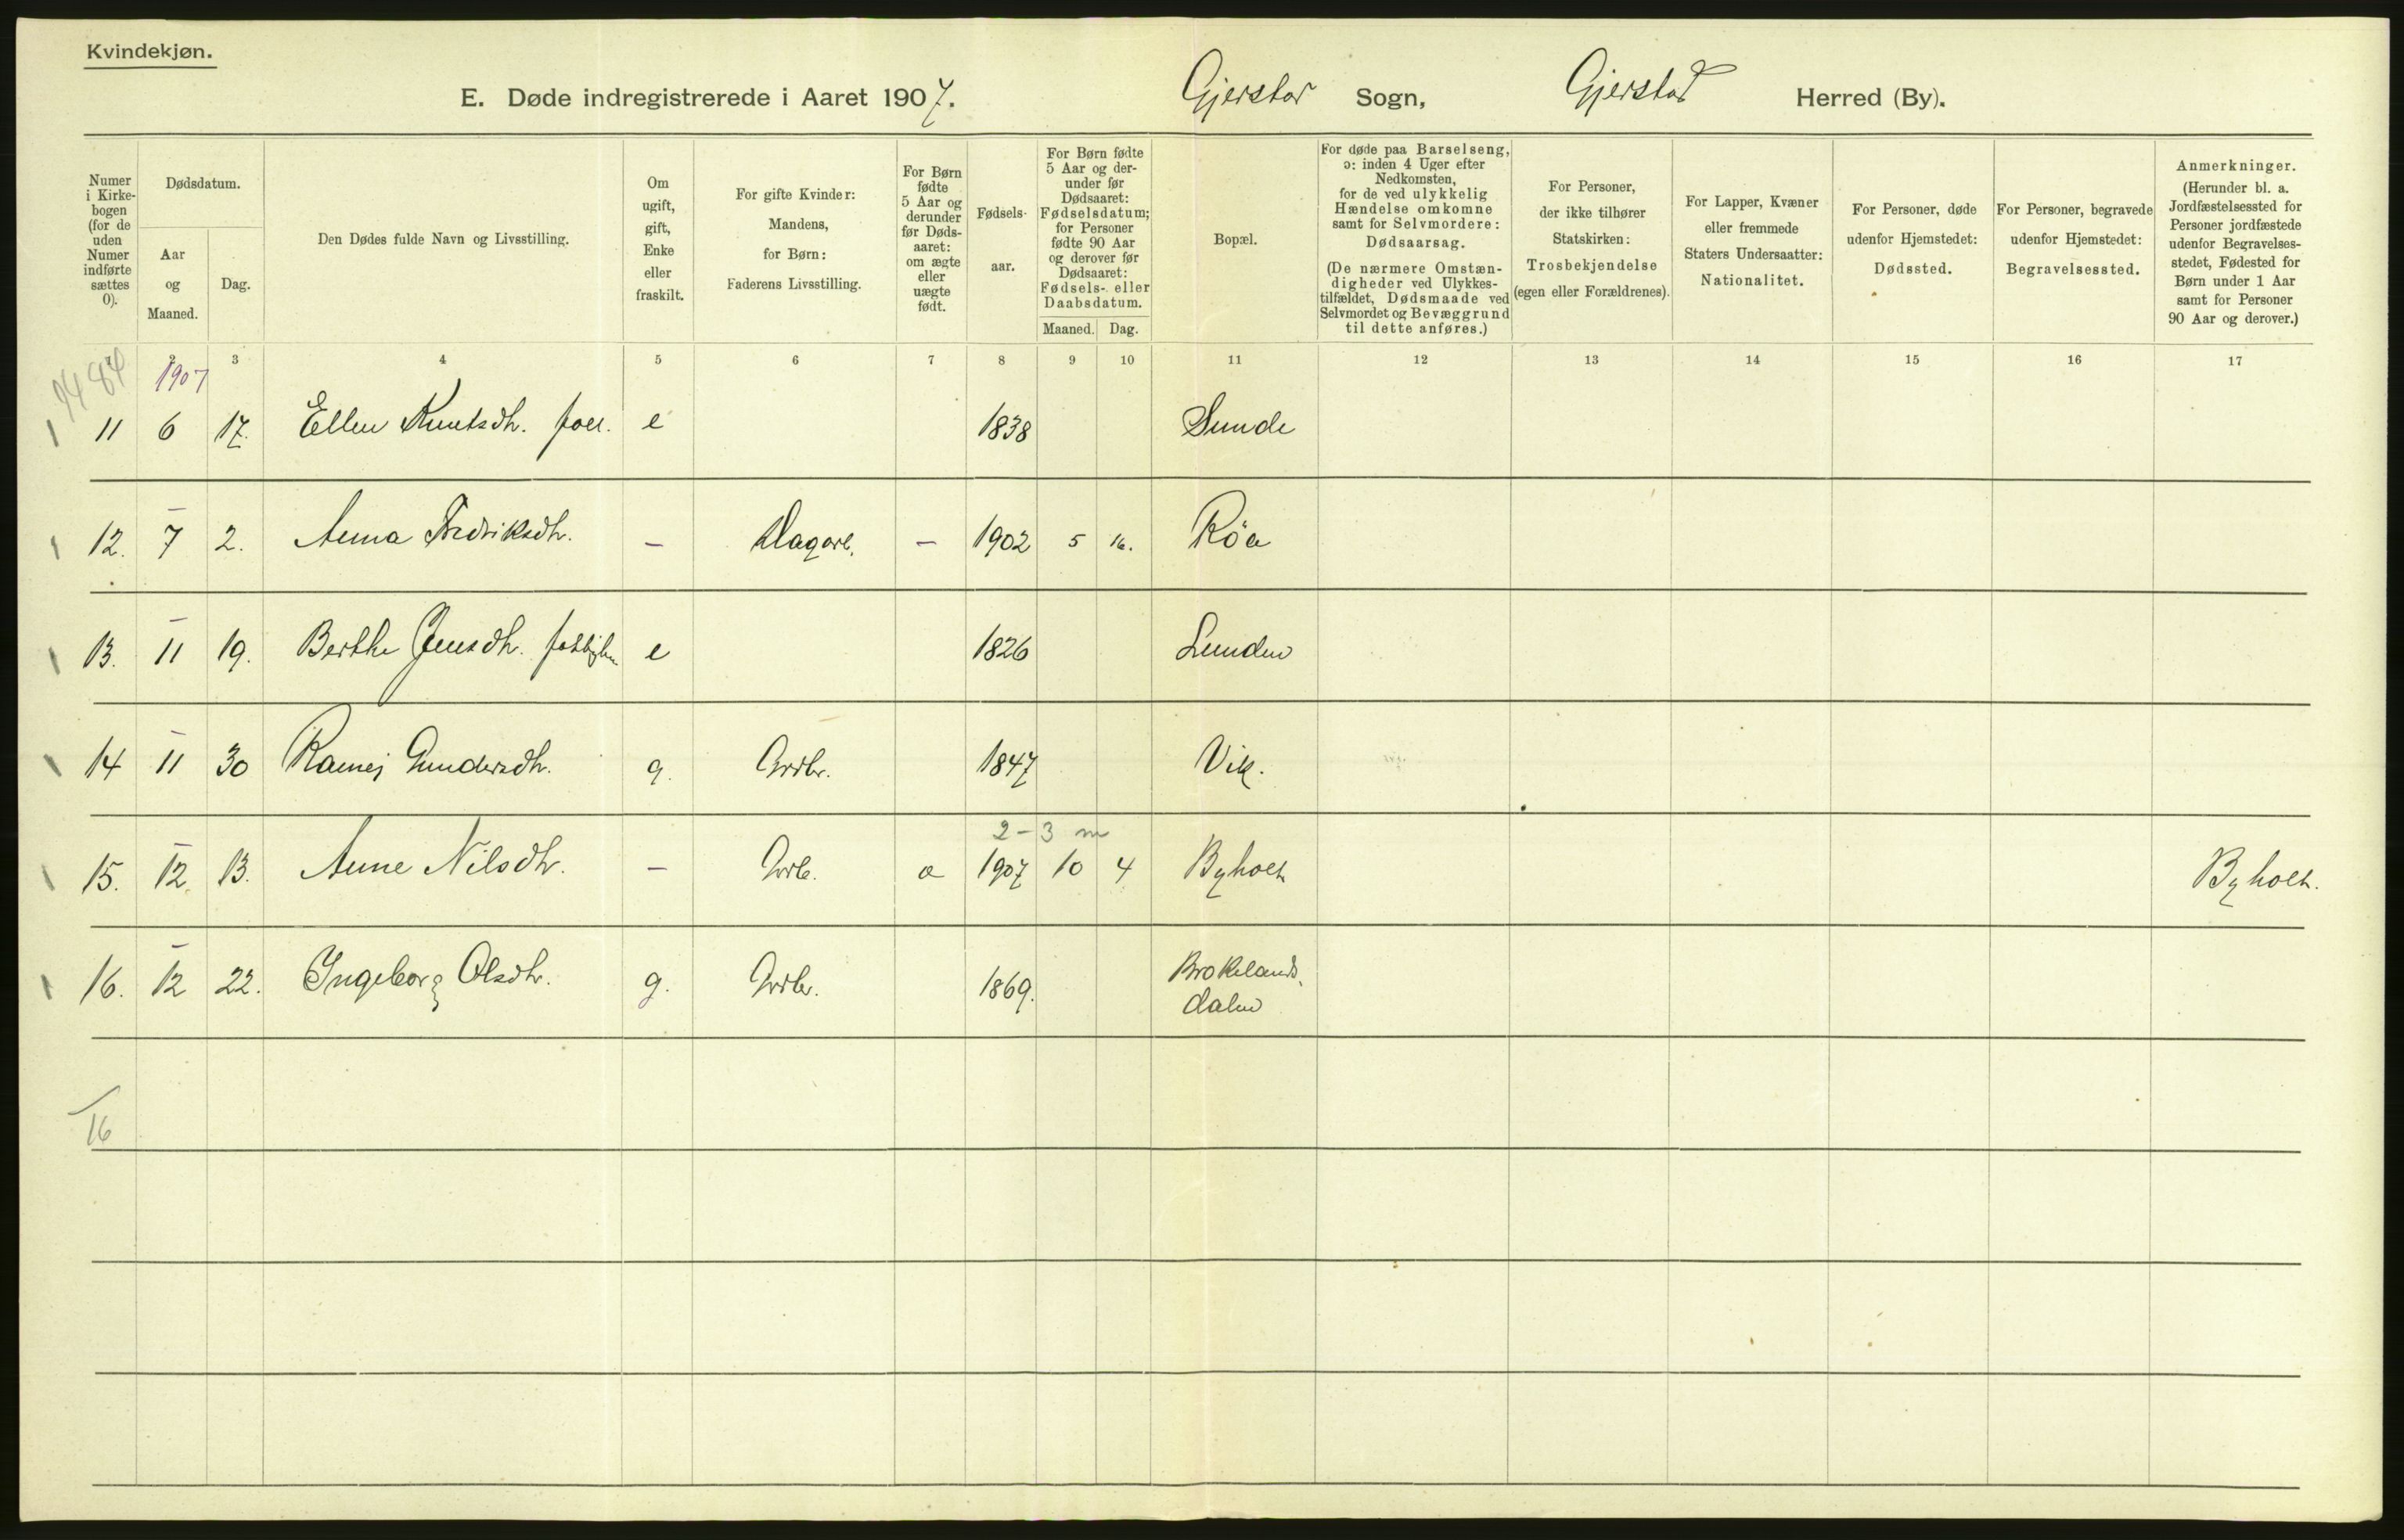 Kvindekjøn.
E. Døde indregistrerede i Aaret 1907. Gjerstad Sogn, Gjerstad Herred (By).
Numer i Kirkebogen (for de uden Numer indførte sættes 0).
Dødsdatum.
Aar og Maaned.
Dag.
Den Dødes fulde Navn og Livsstilling.
Om ugift, gift, Enke eller fraskilt.
For gifte Kvinder: Mandens, for Børn: Faderens Livsstilling.
For Børn fødte 5 Aar og derunder før Dødsaaret: om ægte eller uægte født.
Fødselsaar.
For Børn fødte 5 Aar og derunder før Dødsaaret: Fødselsdatum; for Personer fødte 90 Aar og derover før Dødsaaret: Fødsels- eller Daabsdatum.
Maaned. Dag.
Bopæl.
For døde paa Barselseng, ɔ: inden 4 Uger efter Nedkomsten, for de ved ulykkelig Hændelse omkomne samt for Selvmordere: Dødsaarsag.
(De nærmere Omstændigheder ved Ulykkestilfældet, Dødsmaade ved Selvmordet og Bevæggrund til dette anføres.)
For Personer, der ikke tilhører Statskirken: Trosbekjendelse (egen eller Forældrenes).
For Lapper, Kvæner eller fremmede Staters Undersaatter: Nationalitet.
For Personer, døde udenfor Hjemstedet: Dødssted.
For Personer, begravede udenfor Hjemstedet: Begravelsessted.
Anmerkninger.
(Herunder bl. a. Jordfæstelsessted for Personer jordfæstede udenfor Begravelsesstedet, Fødested for Børn under 1 Aar samt for Personer 90 Aar og derover.)
2 3 4 5 6 7 8 9 10 11 12 13 14 15 16 17
1907
11 6 17. Ellen Knutsdtr. e 1838 Sunde
12. 7 2. Anna Fredriksdtr. — — 1902 5 16. Röa
13. 11 19. Berthe Jensdtr. e 1826 Lunden
14 11 30 Gundersdtr. g. Grdbr. 1847 Vik.
2-3 m
15. 12. 13. Anne Nilsdtr. — Grdb. 1907 10 4 Byholt Byholt.
16. 12 22. Ingeborg Olsdtr. g. Grdbr. 1869. Brokelands
dalen
16